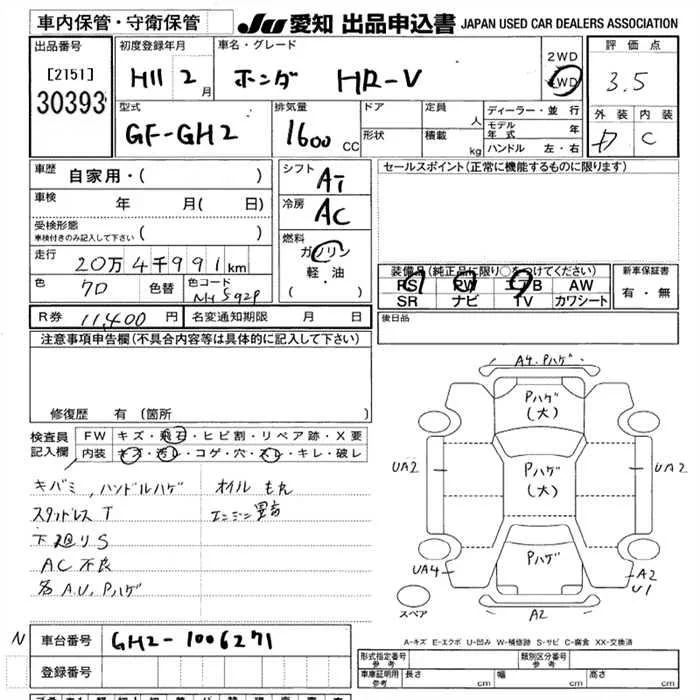 車内保管・守衛保管
JU 愛知 出品申込書 JAPAN USED CAR DEALERS ASSOCIATION
出品番号
[2151]
30393
初度登録年月
H11 2 月
車名・グレード
ホンダ HR-V
2WD
4WD
評価点
3.5
外装 内装
D C
型式
GF-GH2
排気量
1600 CC
ドア
形状
定員 人
積載 kg
ディーラー・並行
モデル年式 年
ハンドル 左・右
車歴 自家用・( )
車検 年 月( 日)
受検形態
車検付きのみ記入して下さい ( )
走行 20万4千991km
色 クロ 色替 色コード NH592P
シフト AT
冷房 AC
燃料
ガソリン
軽・油
( ・ )
セールスポイント(正常に機能するものに限ります)
装備品(純正品に限り○をつけてください)
RS PW エアB AW
SR ナビ TV カワシート
新車保証書
有・無
R券 11,400 円 名変通知期限 月 日
後日品
注意事項申告欄(不具合内容等は具体的に記入して下さい)
修復歴 有 (箇所 )
検査員記入欄
FW キズ・飛石・ヒビ割・リペア跡・X要
内装 キズ・汚レ・コゲ・穴・スレ・キレ・破レ
キバミ, ハンドルハゲ
オイルもれ
スタッドレス T
エンジン異音
下廻りS
AC不良
各A.U, Pハゲ
A4. Pハゲ
Pハゲ
(大)
UA2
Pハゲ
(大)
UA2
Pハゲ
UA4
A2
U1
スペア
A2
N 車台番号 GH2-1006271
登録番号
A-キズ E-エクボ U-凹み W-補修跡 S-サビ C-腐食 XX-交換済
形式指定番号 参考
類別区分番号 参考
車庫証明用 参考
長さ cm 幅 cm 高さ cm